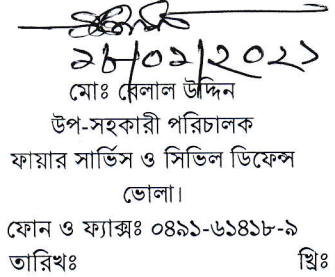 ২৮/০১/২০২১
মোঃ বেলাল উদ্দিন
উপ-সহকারী পরিচালক
ফায়ার সার্ভিস ও সিভিল ডিফেন্স
ভোলা।
ফোন ও ফ্যাক্সঃ ০৪৯১-৬১৪১৮-৯
তারিখঃ খ্রিঃ